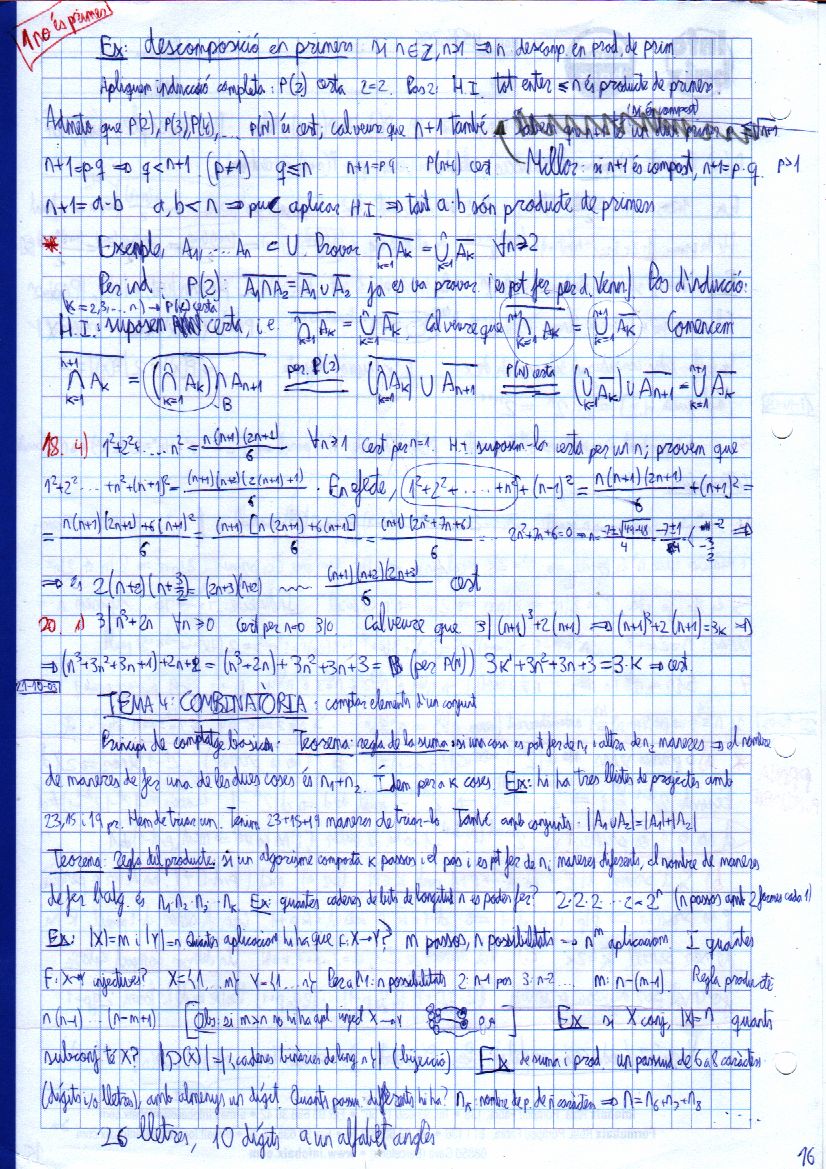 1 no és primer!
Ex: descomposició en primers si n∈Z, n>1 ⇒ n descomp. en prod. de prim
Apliquem inducció completa: P(2) certa 2=2. Pas 2: H.I. tot enter ≤n és producte de primers.
(si és compost)
Admeto que P(2), P(3), P(4), ... P(n) és cert, cal veure que n+1 també
n+1=p·q ⇒ q<n+1 (p≠1) q≤n n+1=p·q P(n+1) cert Millor: si n+1 és compost, n+1=p·q p>1
n+1=a·b a,b<n ⇒ puc aplicar H.I. ⇒ tant a·b són producte de primers
* Exemple, A₁, ... Aₙ ⊂ U. Provar \overline{⋂_{k=1}^{n} A_k} = ⋃_{k=1}^{n} \overline{A_k} ∀n≥2
Per ind: P(2): \overline{A₁∩A₂} = \overline{A₁} ∪ \overline{A₂} ja es va provar (es pot fer per d. Venn) Pas d'inducció:
(k=2,3,...n) → P(k) certa
H.I.: suposem certa, i.e. \overline{⋂_{k=1}^{n} A_k} = ⋃_{k=1}^{n} \overline{A_k}. Cal veure que \overline{⋂_{k=1}^{n+1} A_k} = ⋃_{k=1}^{n+1} \overline{A_k} Comencem
\overline{⋂_{k=1}^{n+1} A_k} = \overline{(⋂_{k=1}^{n} A_k) ∩ A_{n+1}} = per P(2) (\overline{⋂_{k=1}^{n} A_k}) ∪ \overline{A_{n+1}} = P(n) certa (⋃_{k=1}^{n} \overline{A_k}) ∪ \overline{A_{n+1}} = ⋃_{k=1}^{n+1} \overline{A_k}
B
18. 4) 1²+2²+ ... n² = n(n+1)(2n+1)/6 ∀n≥1 Cert per n=1. H.I. suposem-lo certa per un n; provem que
1²+2² ... +n²+(n+1)² = (n+1)(n+2)(2(n+1)+1)/6. En efecte, 1²+2²+ ... +n²+(n-1)² = n(n+1)(2n+1)/6 + (n+1)² =
= n(n+1)(2n+1)+6(n+1)²/6 = (n+1)[n(2n+1)+6(n+1)]/6 = (n+1)(2n²+7n+6)/6 2n²+7n+6=0 ⇒ n = -7±√(49-48)/4 = -7±1/4 < -2 -3/2 ⇒
⇒ és 2(n+2)(n+3/2) = (2n+3)(n+2) ~~~ (n+1)(n+2)(2n+3)/6 cert
20. 1) 3|n³+2n ∀n≥0 Cert per n=0 3|0. Cal veure que 3|(n+1)³+2(n+1) ⇒ (n+1)³+2(n+1)=3k ⇒
⇒ (n³+3n²+3n+1)+2n+2 = (n³+2n)+3n²+3n+3 = (per P(n)) 3k'+3n²+3n+3 = 3·K ⇒ cert.
21-10-03
TEMA 4: COMBINATÒRIA: comptar elements d'un conjunt
Principi de comptatge bàsics: Teorema: regla de la suma: si una cosa es pot fer de n₁ i altra de n₂ maneres ⇒ el nombre
de maneres de fer una de les dues coses és n₁+n₂. Ídem per a k coses. Ex: hi ha tres llistes de projectes amb
23, 15 i 19 pr. Hem de triar un. Tenim 23+15+19 maneres de triar-lo. També amb conjunts. |A₁∪A₂|=|A₁|+|A₂|
Teorema: Regla del producte: si un algorisme comporta k passos i el pas i es pot fer de nᵢ maneres diferents, el nombre de maneres
de fer l'alg. és n₁·n₂·n₃...n_k Ex: quantes cadenes de bits de longitud n es poden fer? 2·2·2 ... 2=2ⁿ (n passos amb 2 formes cada 1)
Ex: |X|=m i |Y|=n Quantes aplicacions hi ha que f: X→Y? m passos, n possibilitats → nᵐ aplicacions. I quantes
F: X→Y injectives? X={1...m} Y={1...n} Per a l'1: n possibilitats 2: n-1 pos 3: n-2 ... m: n-(m-1). Regla producte
n(n-1) ... (n-m+1) [Obs: si m>n no hi ha apl. inject X→Y] Ex si X conj, |X|=n quants
subconj té X? |P(X)|=|{cadenes binàries de long n}| (bijecció) Ex de suma i prod. un passwd de 6 a 8 caràcters
(dígits i/o lletres), amb almenys un dígit. Quants passw. diferents hi ha? nₖ: nombre de p. de k caràcters ⇒ n=n₆+n₇+n₈
26 lletres, 10 dígits a un alfabet anglès
16